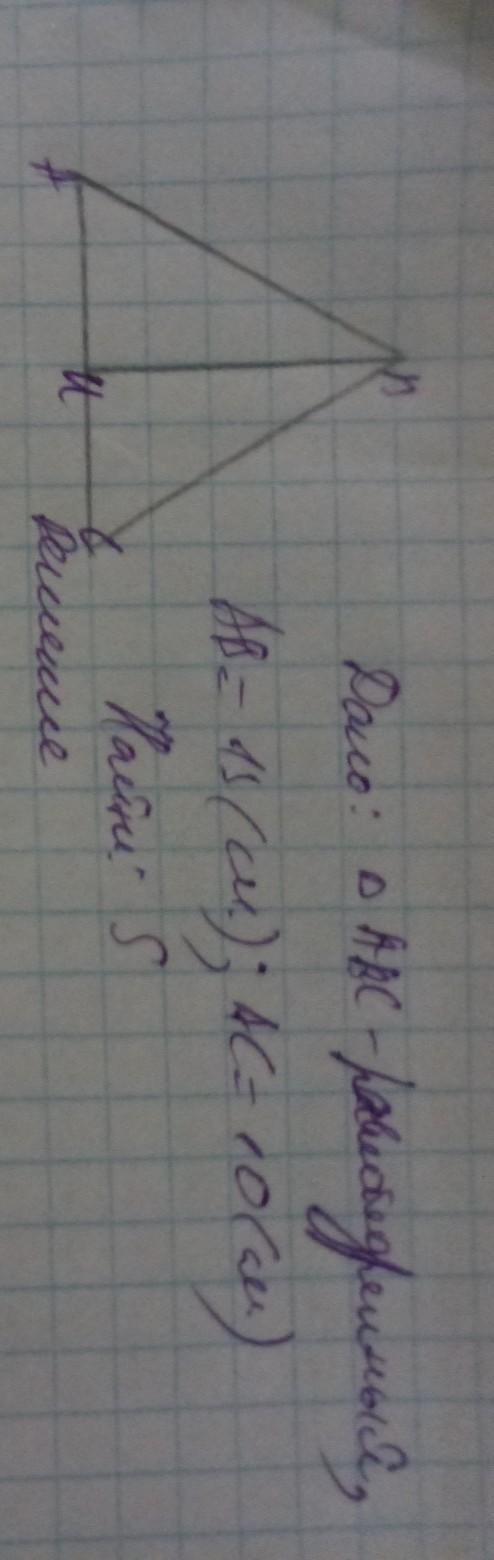 В
А
H
С
Дано: △ ABC - равнобедренный,
AB = 15 (см); AC = 10 (см)
Найти: S
Решение